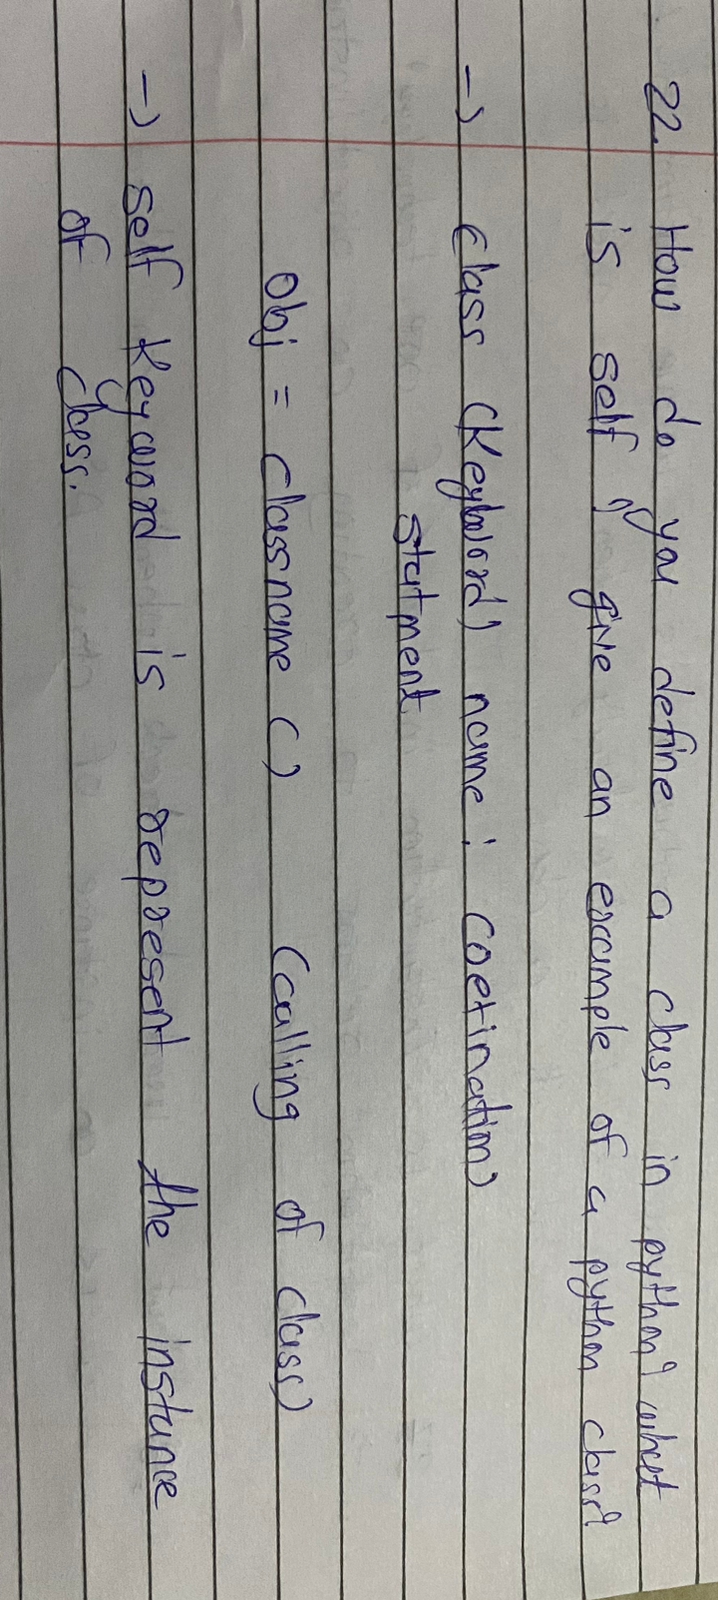 22. How do you define a class in python? what
is self? give an example of a python class?
-> class (Keyword) name : (oetination)
statment
obj = classname () (calling of class)
-> self keyword is represent the instance
of class.